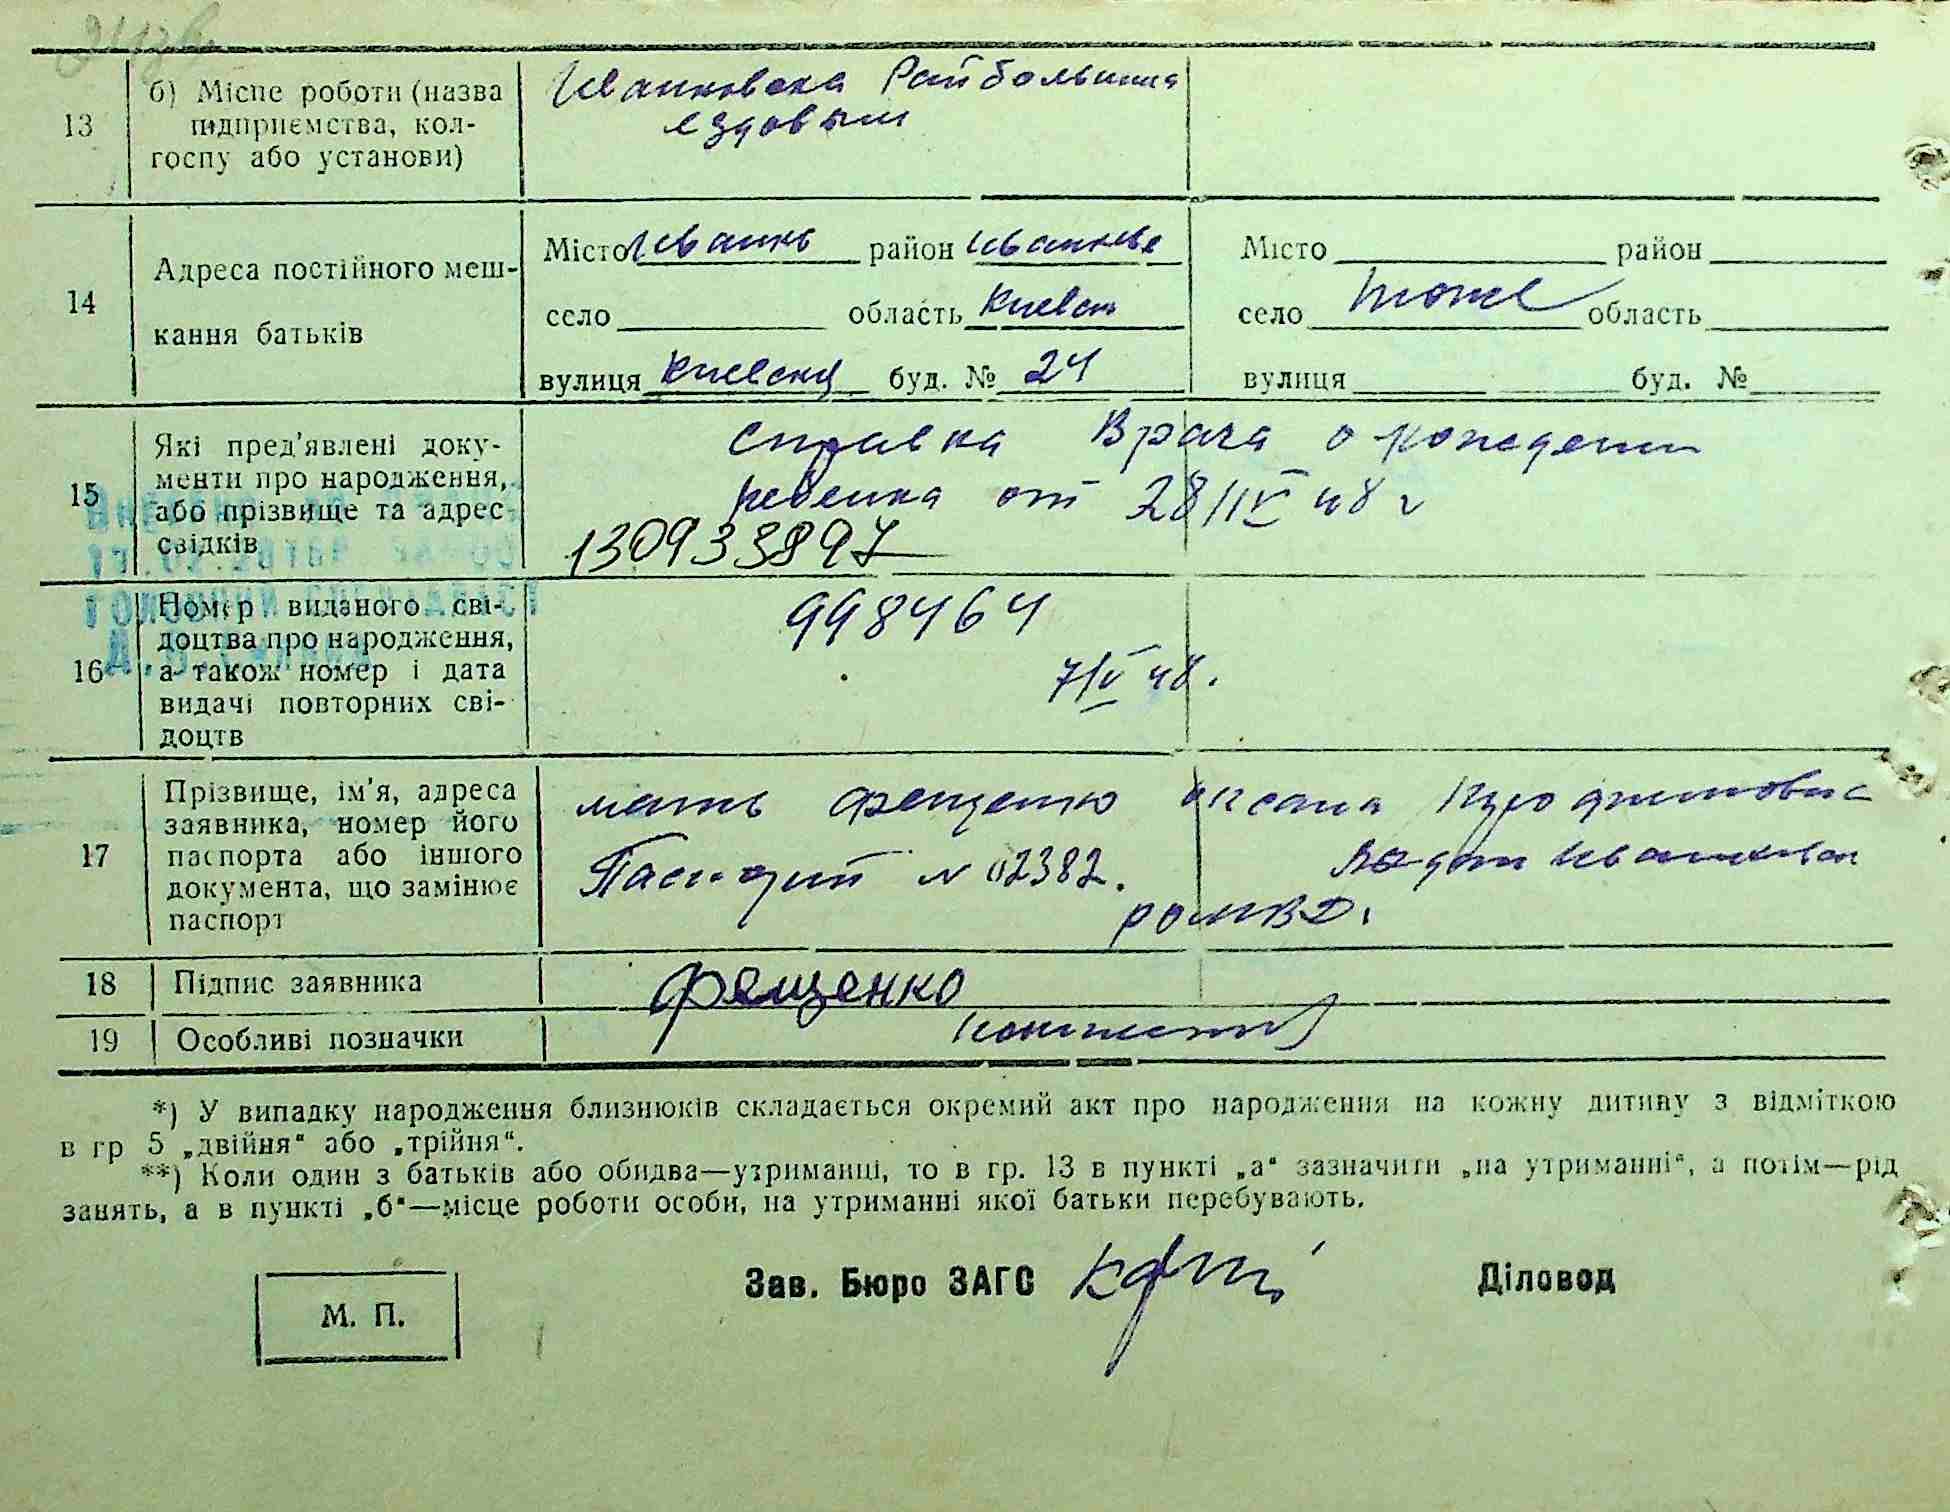 13
б) Місце роботи (назва
підприємства, кол-
госпу або установи)
Иванковска Райбольница
ездовым
14
Адреса постійного меш-
кання батьків
Місто Иванкв район Иванкве
село область Киевск
вулиця Киевска буд. № 24
Місто район
село тоже область
вулиця буд. №
15
Які пред’явлені доку-
менти про народження,
або прізвище та адрес
свідків
справка Врача о рождении
ребенка от 28/IV 48 г
130933897
16
Номер виданого сві-
доцтва про народження,
а також номер і дата
видачі повторних сві-
доцтв
998464
7/V 48.
17
Прізвище, ім’я, адреса
заявника, номер його
паспорта або іншого
документа, що замінює
паспорт
мать Фещенко Оксана
Паспорт № 02382. Иванковск
РОМВД.
18
Підпис заявника
Фещенко
19
Особливі позначки
*) У випадку народження близнюків складається окремий акт про народження на кожну дитину з відміткою
в гр 5 „двійня“ або „трійня“.
**) Коли один з батьків або обидва—утриманці, то в гр. 13 в пункті „а“ зазначити „на утриманні“, а потім—рід
занять, а в пункті „б“—місце роботи особи, на утриманні якої батьки перебувають.
М. П.
Зав. Бюро ЗАГС
Діловод